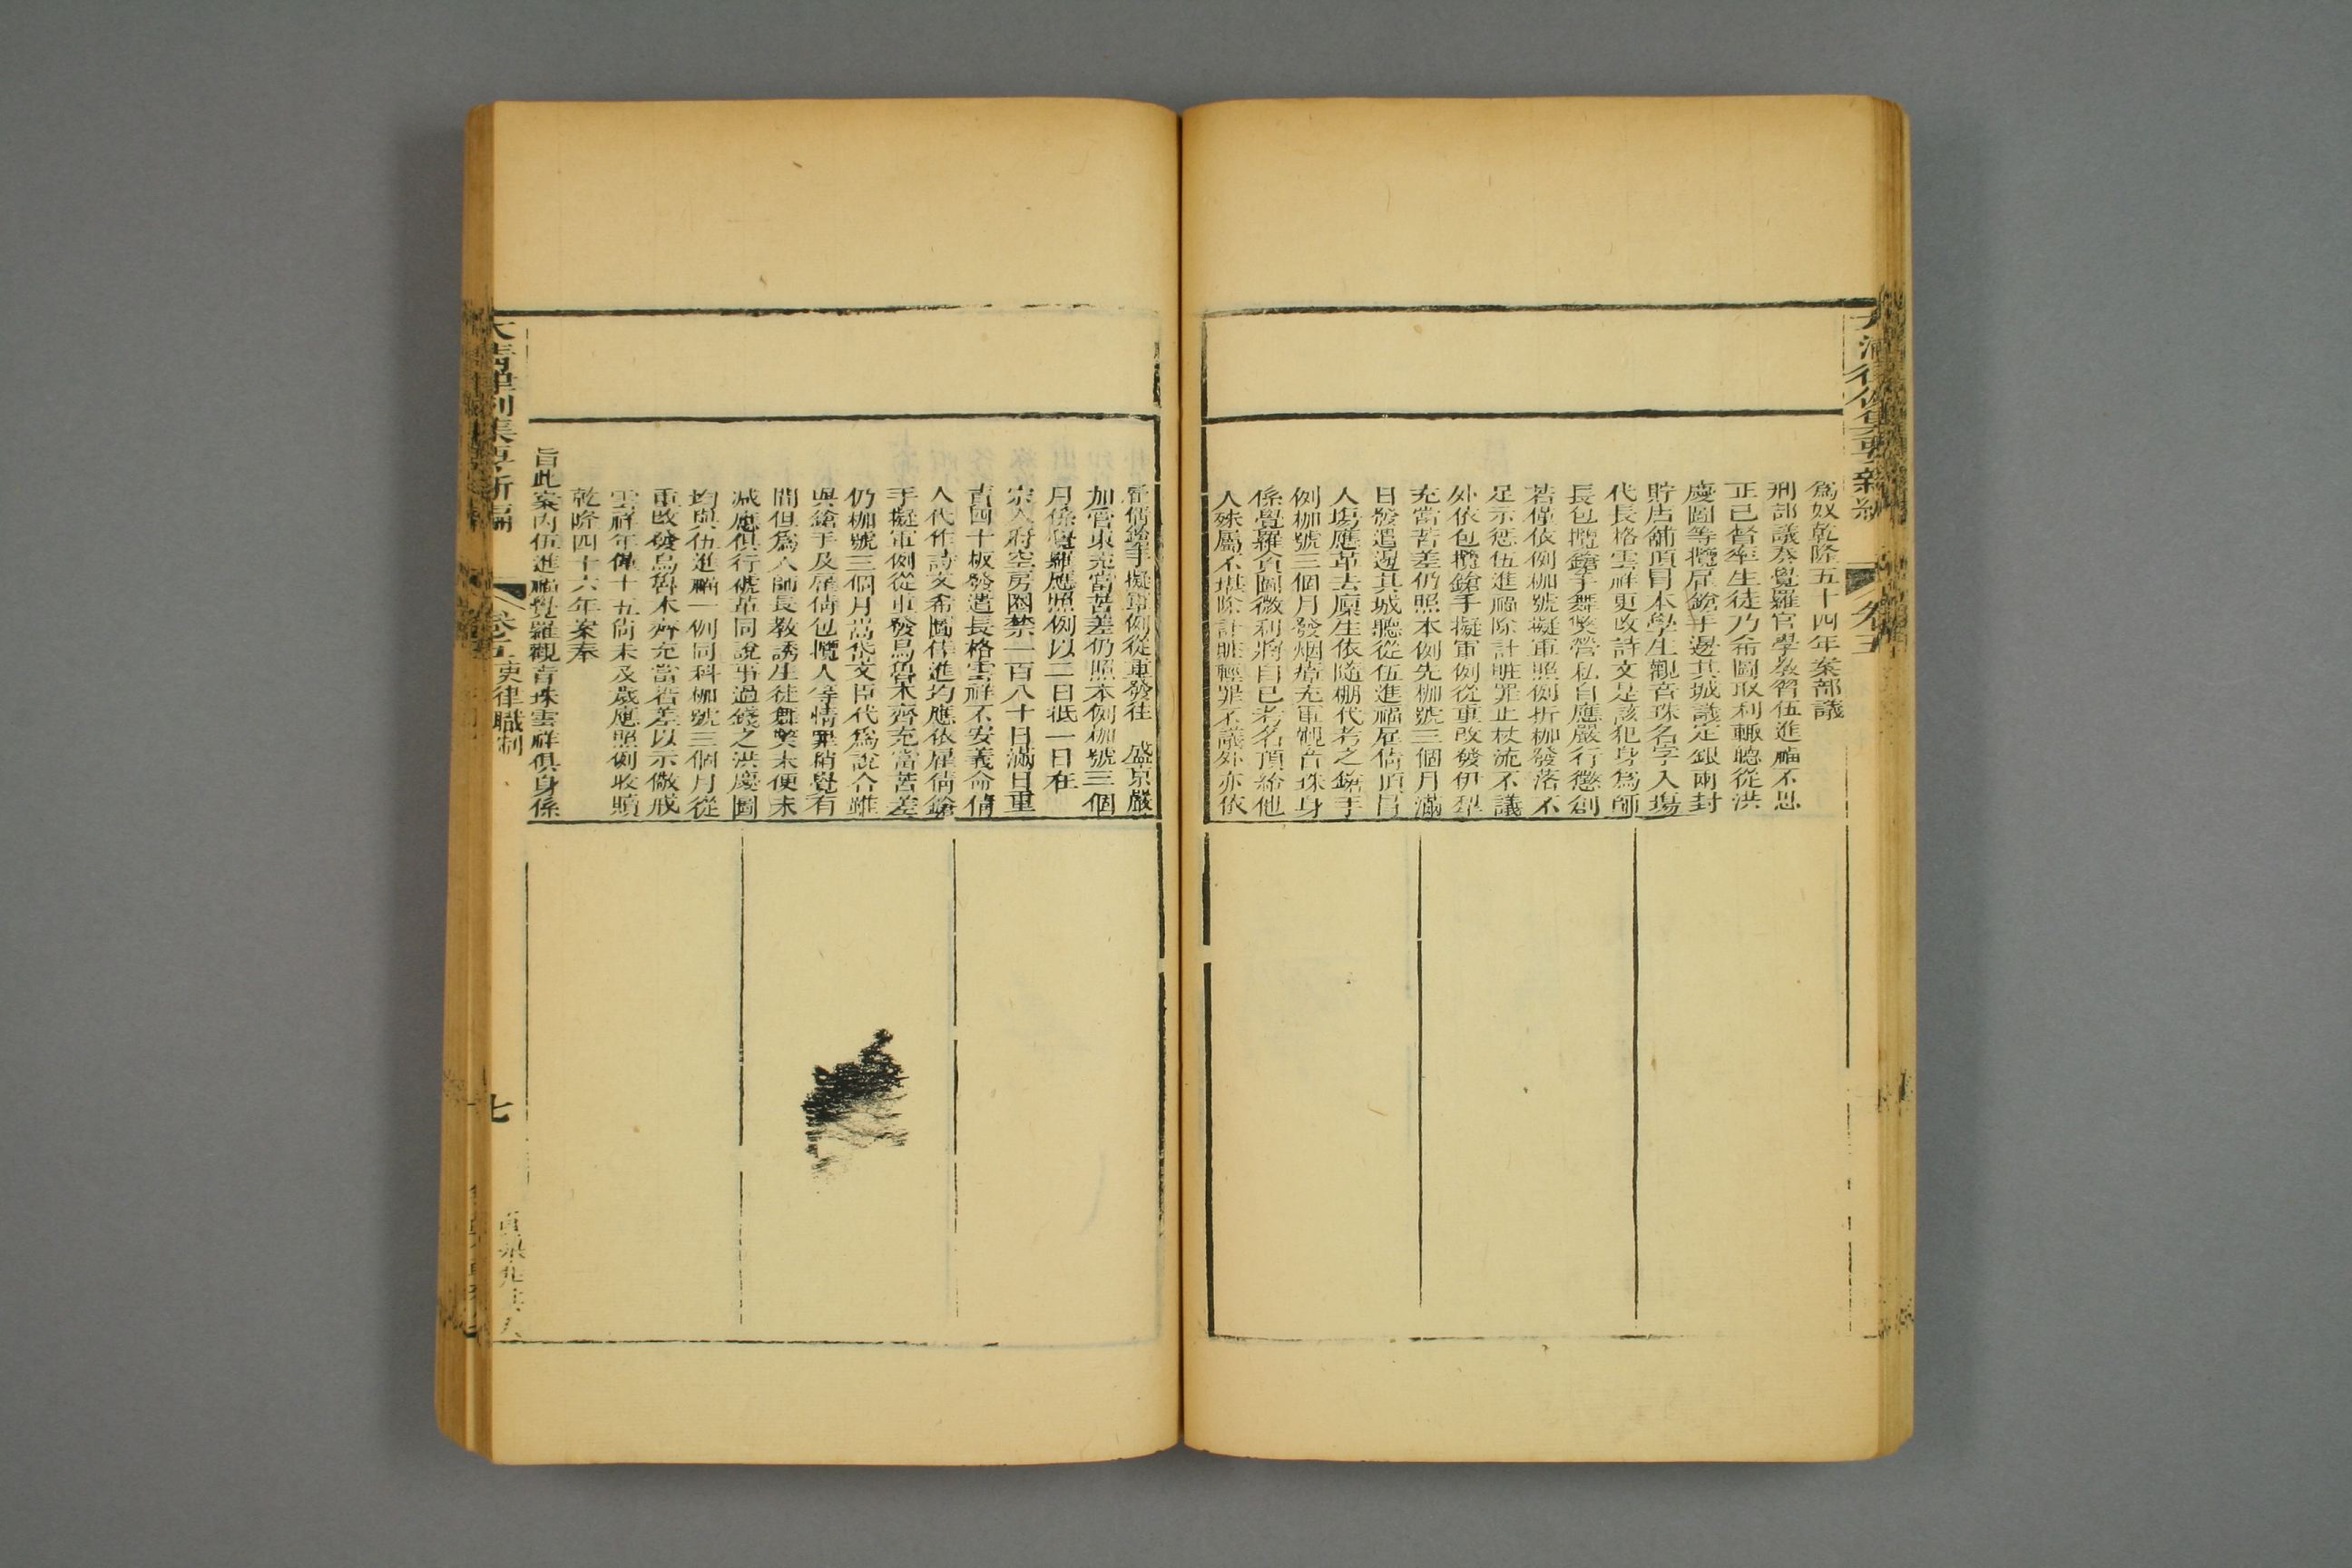 爲奴乾隆五十四年案部議
刑部議奏覺羅官學教習伍進福不思
正已督率生徒乃希圖取利輙聽從洪
慶圖等攬雇鎗手邊其城議定銀兩封
貯店舖頂冒本學生觀音珠名字入塲
代長格雲祥更改詩文是該犯身爲師
長包攬鎗手舞獘營私自應嚴行懲創
若僅依例枷號擬軍照例折枷發落不
足示懲伍進福除計賍罪止杖流不議
外依包攬鎗手擬軍例從重改發伊犂
充當苦差仍照本例先枷號三個月滿
日發遣邊其城聽從伍進福雇倩頂冒
人塲應革去廩生依隨棚代考之鎗手
例枷號三個月發烟瘴充軍觀音珠身
係覺羅貪圖微利將自已考名頂給他
人殊屬不堪除計賍輕罪不議外亦依
雇倩鎗手擬軍例從重發往 盛京嚴
加管束充當苦差仍照本例枷號三個
月係覺羅應照例以二日抵一日在
宗人府空房圈禁一百八十日滿日重
責四十板發遣長格雲祥不安義命倩
人代作詩文希圖倖進均應依雇倩鎗
手擬軍例從重發烏魯木齊充當苦差
仍枷號三個月萬岱文臣代爲說合雖
與鎗手及雇倩包攬人等情罪稍覺有
間但爲人師長教誘生徒舞獘未便未
減應俱行褫革同說事過錢之洪慶圖
均與伍進福一例同科枷號三個月從
重改發烏魯木齊充當苦差以示儆戒
雲祥年僅十五尙未及歲應照例收贖
乾隆四十六年案奉
旨此案內伍進福覺羅觀音珠雲祥俱身係
大清律例集要新編
卷五
吏律職制
七